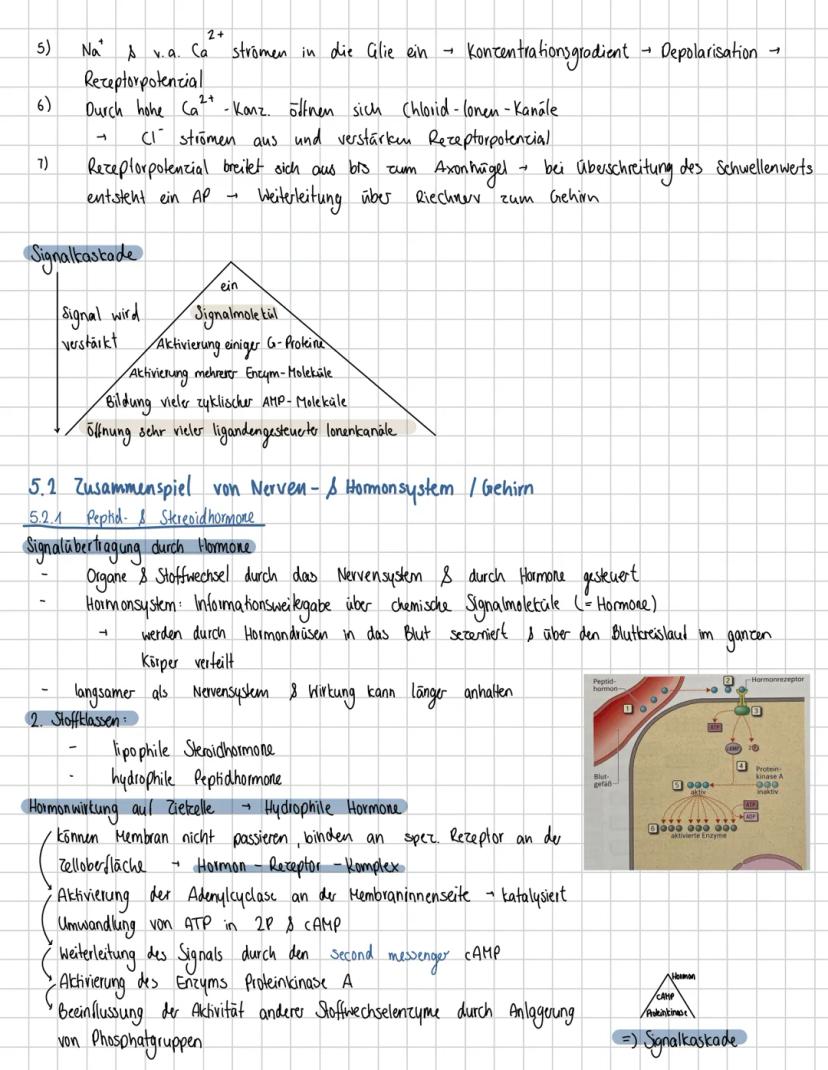 5) Na⁺ & v.a. Ca²⁺ strömen in die Cilie ein → Konzentrationsgradient → Depolarisation →
Rezeptorpotenzial
6) Durch hohe Ca²⁺-Konz. öffnen sich Chlorid-Ionen-Kanäle
→ Cl⁻ strömen aus und verstärken Rezeptorpotenzial
7) Rezeptorpotenzial breitet sich aus bis zum Axonhügel → bei Überschreitung des Schwellenwerts
entsteht ein AP → Weiterleitung über Riechnerv zum Gehirn
Signalkaskade
Signal wird
verstärkt
ein
Signalmolekül
Aktivierung einiger G-Proteine
Aktivierung mehrerer Enzym-Moleküle
Bildung vieler zyklischer AMP-Moleküle
Öffnung sehr vieler ligandengesteuerter Ionenkanäle
5.2 Zusammenspiel von Nerven- & Hormonsystem / Gehirn
5.2.1 Peptid- & Steroidhormone
Signalübertragung durch Hormone
- Organe & Stoffwechsel durch das Nervensystem & durch Hormone gesteuert
- Hormonsystem: Informationsweitergabe über chemische Signalmoleküle (= Hormone)
→ werden durch Hormondrüsen in das Blut sezerniert & über den Blutkreislauf im ganzen
Körper verteilt
- langsamer als Nervensystem & Wirkung kann länger anhalten
2. Stoffklassen:
- lipophile Steroidhormone
- hydrophile Peptidhormone
Hormonwirkung auf Zielzelle → Hydrophile Hormone
können Membran nicht passieren, binden an spez. Rezeptor an der
Zelloberfläche → Hormon-Rezeptor-Komplex
Aktivierung der Adenylcyclase an der Membraninnenseite → katalysiert
Umwandlung von ATP in 2P & cAMP
Weiterleitung des Signals durch den second messenger cAMP
Aktivierung des Enzyms Proteinkinase A
Beeinflussung der Aktivität anderer Stoffwechselenzyme durch Anlagerung
von Phosphatgruppen
Peptid-
hormon
Hormonrezeptor
1
2
3
ATP
cAMP
2 P
4
Blut-
gefäß
Protein-
kinase A
5
aktiv
inaktiv
ATP
ADP
6
aktivierte Enzyme
Hormon
cAMP
Proteinkinase
=> Signalkaskade